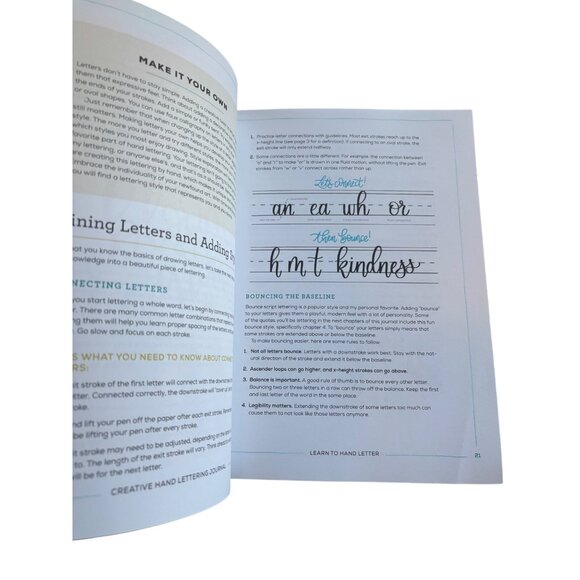 MAKE IT YOUR OWN
Letters don't have to stay simple. Adding a
them that expressive feel. Think about adding a
the ends of your strokes. Add a simple
or oval shapes. You can use four
Just remember that when changing
still matters. Making letters your own
style. The more you letter and try different
which styles you most enjoy drawing. Style
favorite part of hand lettering. Your
my lettering, or anyone else's, and that's
are creating this lettering by hand, which makes
embrace the individuality of your newfound art. With
you will find a lettering style that represents you and
ining Letters and Adding
at you know the basics of drawing letters, let's take
nowledge into a beautiful piece of lettering.
NECTING LETTERS
you start lettering a whole word, let's begin by connecting
er. There are many common letter combinations that
ing them will help you learn proper spacing of the letters
Go slow and focus on each stroke.
S WHAT YOU NEED TO KNOW ABOUT
ERS:
it stroke of the first letter will connect with the
etter. Connected correctly, the downstroke will "cover
oke.
nd lift your pen off the paper after each exit stroke.
be lifting your pen after every stroke.
it stroke may need to be adjusted, depending on the
to. The length of the exit stroke will vary. Think ahead
will be for the next letter.
CREATIVE HAND LETTERING JOURNAL
1. Practice letter connections with guidelines. Most exit strokes reach up to the
x-height line (see page 3 for a definition). If connecting to an oval stroke, the
exit stroke will only extend halfway.
2. Some connections are a little different. For example, the connection between
"o" and "r" to make "or" is drawn in one fluid motion, without lifting the pen. Exit
strokes from "w" or "v" connect across rather than up.
Let's connect!
an ea wh or
then bounce!
h m t kindness
BOUNCING THE BASELINE
Bounce script lettering is a popular style and my personal favorite. Adding "bounce"
to your letters gives them a playful, modern feel with a lot of personality. Some
of the quotes you'll be lettering in the next chapters of this journal include this fun
bounce style, specifically chapter 4. To "bounce" your letters simply means that
some strokes are extended above or below the baseline.
To make bouncing easier, here are some rules to follow.
1. Not all letters bounce. Letters with a downstroke work best. Stay with the nat-
ural direction of the stroke and extend it below the baseline.
2. Ascender loops can go higher, and x-height strokes can go above.
3. Balance is important. A good rule of thumb is to bounce every other letter.
Bouncing two or three letters in a row can throw off the balance. Keep the first
and last letter of the word in the same place.
4. Legibility matters. Extending the downstroke of some letters too much can
cause them to not look like those letters anymore.
LEARN TO HAND LETTER
21